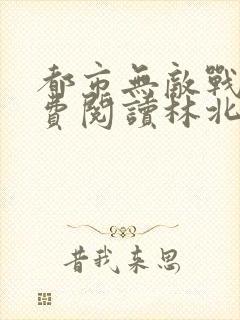 都市無敵戰
費閱讀林北
昔我来思